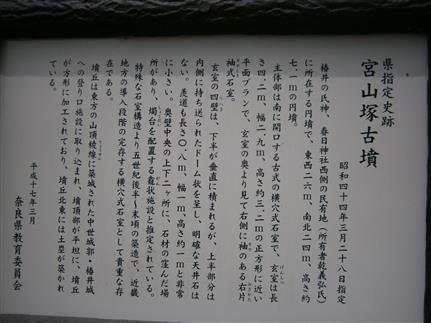 県指定史跡
宮山塚古墳
昭和四十四年三月二十八日指定
椿井の氏神、春日神社西側の民有地（所有者乾義弘氏）
に所在する円墳で、東西二六ｍ、南北二四ｍ、高さ約
七．一ｍの円墳。
主体部は南に開口する古式の横穴式石室で、玄室は長
さ四．二ｍ、幅二．九ｍ、高さ約三．二ｍの正方形に近い
平面プランで、玄室の奥より見て右側に袖のある右片
袖式石室。
玄室の四壁は、下半が垂直に積まれるが、上半部分は
内側に持ち送られたドーム状を呈し、明確な天井石は
ない。羨道も長さ〇．八ｍ、幅一ｍ、高さ約一ｍと非常
に小さい。奥壁中央の上下二ヶ所に、石材の窪んだ場
所があり、燭台を配置する龕状施設と推定されている。
特殊な石室構造より五世紀後半～末頃の築造で、近畿
地方の導入段階の定存する横穴式石室として貴重な存
在である。
墳丘は東方の山頂稜線に築城された中世城郭・椿井城
への登り口施設に取り込まれ、墳頂部が平坦に、墳丘
が方形に加工されており、墳丘北東には土塁が築かれ
ている。
平成十七年三月
奈良県教育委員会